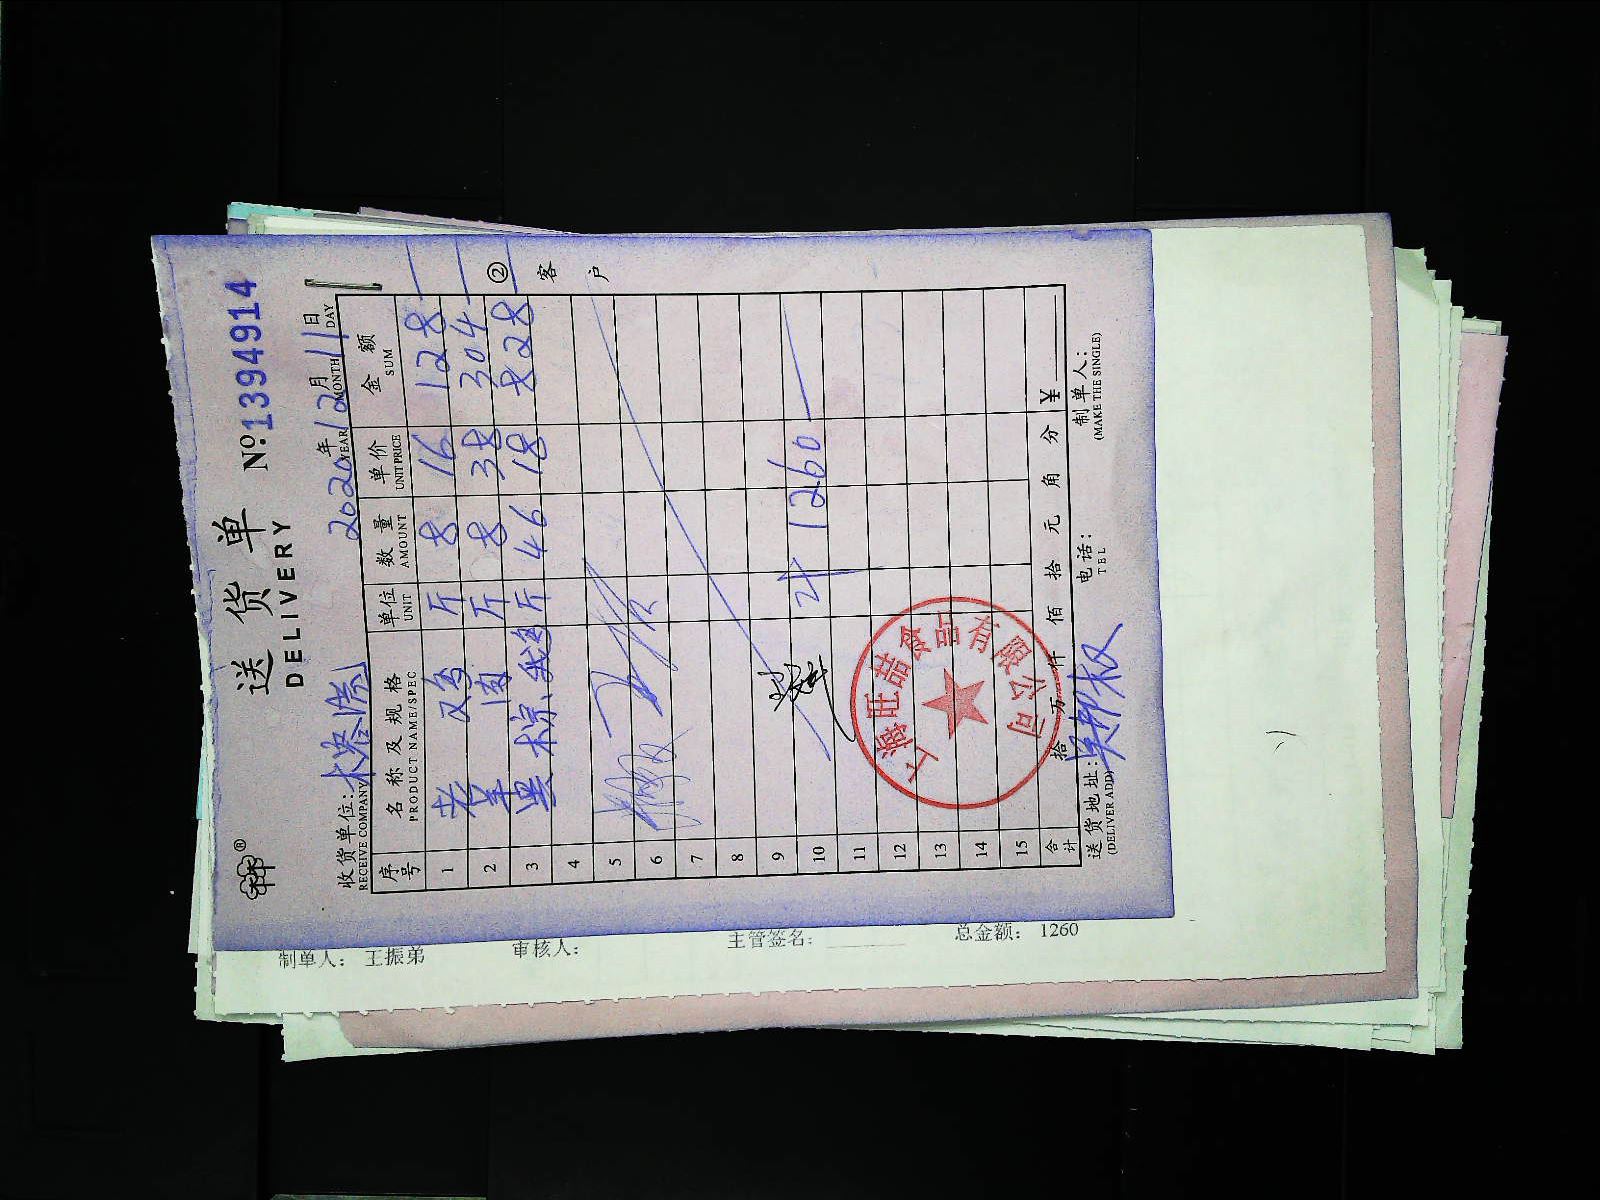 送 货 单
DELIVERY
№ 1394914
收货单位:
RECEIVE COMPANY
2020年12月11日
YEAR MONTH DAY
序号 名 称 及 规 格 单位 数 量 单 价 金 额
PRODUCT NAME/SPEC UNIT AMOUNT UNIT PRICE SUM
1 斤 8 16 128
2 斤 8 38 304
3 斤 46 18 828
4
5
6
7
8
9
10 计 1260
11
12
13
14
15
合计 拾 万 仟 佰 拾 元 角 分 ¥
送 货 地 址: 电 话: 制 单 人:
(DELIVER ADD) TEL (MAKE THE SINGLE)
② 客 户
上海旺喆食品有限公司
制单人: 王振弟 审核人: 主管签名: 总金额: 1260